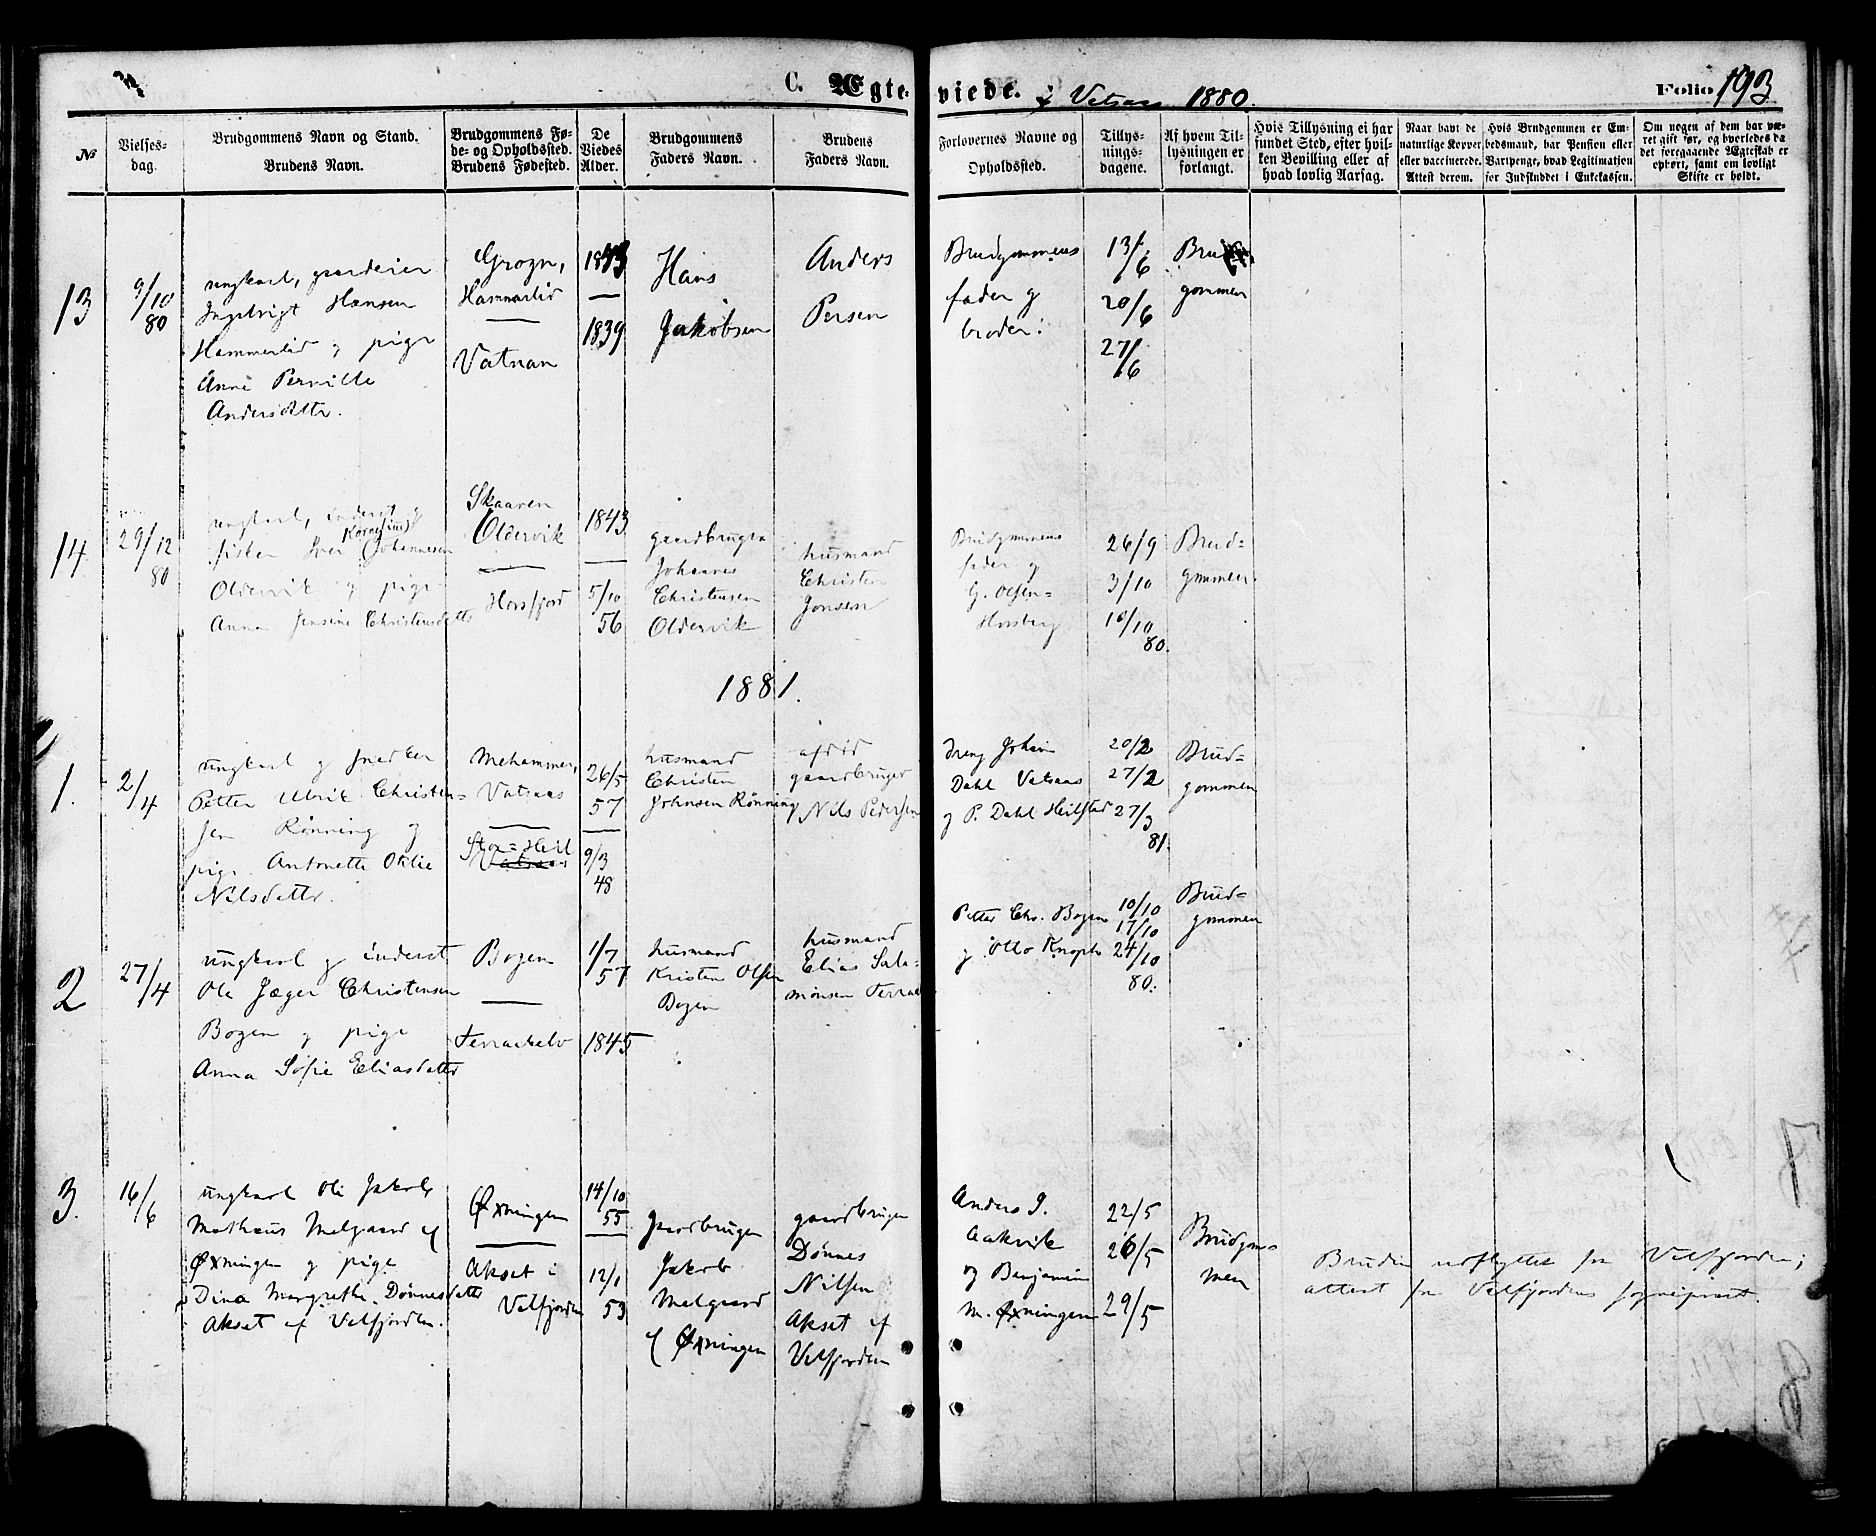 C. Ægteviede. i Vatsaas 1880.
Folio 193
№
Vielses-
dag.
Brudgommens Navn og Stand.
Brudens Navn.
Brudgommens Fø-
de- og Opholdssted.
Brudens Fødested.
De
Viedes
Alder.
Brudgommens
Faders Navn.
Brudens
Faders Navn.
Forlovernes Navne og
Opholdssted.
Tillys-
nings-
dagene.
Af hvem Til-
lysningen er
forlangt.
Hvis Tillysning ei har
fundet Sted, efter hvil-
ken Bevilling eller af
hvad lovlig Aarsag.
Naar havt de
naturlige Kopper
eller vaccinerede.
Attest derom.
Hvis Brudgommen er Em-
bedsmand, har Pension eller
Vartpenge, hvad Legitimation
for Indskuddet i Enkekassen.
Om nogen af dem har væ-
ret gift før, og hvorledes da
det foregaaende Ægteskab er
ophørt, samt om lovligt
Skifte er holdt.
13
9/10
80
ungkarl, gaardeier
Ingebrigt Hansen
Hammerlid og pige
Anne Pernille
Andersdatter.
Grogn,
Hammerlid
—
Vatnan
1843
—
1839
Hans
Jakobsen
Anders
Persen
Brudgommens
fader og
broder.
13/6
20/6
27/6
Brud-
gommen
14.
29/12
80
ungkarl, inderst og
fisker Iver (Kornelius) Johannesen
Oldervik og pige
Anna Jensine Christensdatter
Skaaren
Oldervik
—
Horsfjord
1843
—
5/10
56
gaardbruger
Johannes
Christensen
Oldervik
husmand
Christen
Jonsen
Brudgommens
fader og
G. Olsen-
Horsberg
26/9
3/10
10/10
80.
Brud-
gommen.
1881.
1.
2/4
ungkarl og snedker
Petter Ulrik Christen-
sen Rønning og
pige Antonette Otilie
Nilsdatter.
Mehammer,
Vatsaas
—
Stor-Heil
Vatsaas
26/5
57
—
9/3
48
husmand
Christen
Johnsen Rønning
afdød
gaardbruger
Nils Pedersen
Johan
Dahl Vatsaas
og P. Dahl Heilstad
20/2
27/2
27/3
81.
Brud-
gommen
2
27/4
ungkarl og inderst
Ole Jæger Christensen
Bogen og pige
Anna Sofie Eliasdatter
Bogen
—
Terraakelv
1/7
57
1845
husmand
Kristen Olsen
Bogen
husmand
Elias Salo-
monsen Terraak
Petter Chr. Bogen
og Otto Knoph
10/10
17/10
24/10
80.
Brud-
gommen
3.
16/6
ungkarl Ole Jakob
Mathæus Melgaard af
Øxningen og pige
Dina Margrethe Dønnesdatter
Akset af Velfjorden.
Øxningen
—
Akset i
Velfjorden
14/10
55
—
12/1
53
gaardbruger
Jakob
Melgaard
af Øxningen
gaardbruger
Dønnes
Nilsen
Akset af
Velfjorden
Anders J.
Aakvik
og Benjamin
M. Øxningen
22/5
26/5
29/5
Brudgom-
men
Bruden udflyttet fra Velfjorden;
attest fra Velfjordens sognepræst.